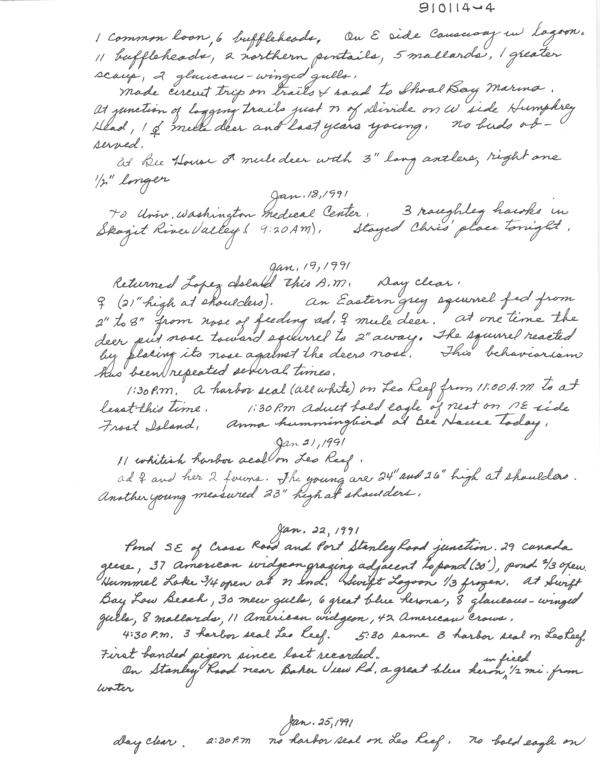 910114-4
1 common loon, 6 buffleheads. On E side Causeway in Lagoon.
11 buffleheads, 2 northern pintails, 5 mallards, 1 greater
scaup, 2 glaucous-winged gulls.
Made circuit trip on trails & road to Shoal Bay Marina.
At junction of logging trails just N of Divide on W side Humphrey
Head, 1 ♀ mule deer and last years young. No birds ob-
served.
At Bee House ♂ mule deer with 3" long antlers, right one
1/2" longer
Jan. 18, 1991
To Univ. Washington Medical Center. 3 roughleg hawks in
Skagit River Valley (9:20 AM). Stayed Chris' place tonight.
Jan. 19, 1991
Returned Lopez Island this A.M. Day clear.
♀ (21" high at shoulders). An Eastern grey squirrel fed from
2" to 8" from nose of feeding ad. ♀ mule deer. At one time the
deer put nose toward squirrel to 2" away. The squirrel reacted
by placing its nose against the deers nose. This behaviorism
has been repeated several times.
1:30 P.M. A harbor seal (all white) on Leo Reef from 11:00 A.M to at
least this time. 1:30 P.M adult bald eagle at nest on NE side
Frost Island. Anna hummingbird at Bee House today.
Jan 21, 1991
11 whitish harbor seal on Leo Reef.
ad ♀ and her 2 fawns. The young are 24" and 26" high at shoulders.
Another young measured 23" high at shoulders.
Jan. 22, 1991
Pond SE of Cross Road and Port Stanley Road junction. 29 Canada
geese, 37 American widgeon grazing adjacent to pond (30'), pond 2/3 open.
Hummel Lake 3/4 open at N end. Swift Lagoon 1/3 frozen. At Swift
Bay Low Beach, 30 mew gulls, 6 great blue herons, 8 glaucous-winged
gulls, 8 mallards, 11 American widgeon, 42 American crows.
4:30 P.M. 3 harbor seal Leo Reef. 5:30 same 3 harbor seal on Leo Reef.
First banded pigeon since last recorded.
On Stanley Road near Baker View Rd. a great blue heron in field 1/2 mi. from
water
Jan. 25, 1991
Day clear. 2:30 P.M no harbor seal on Leo Reef. No bald eagle on